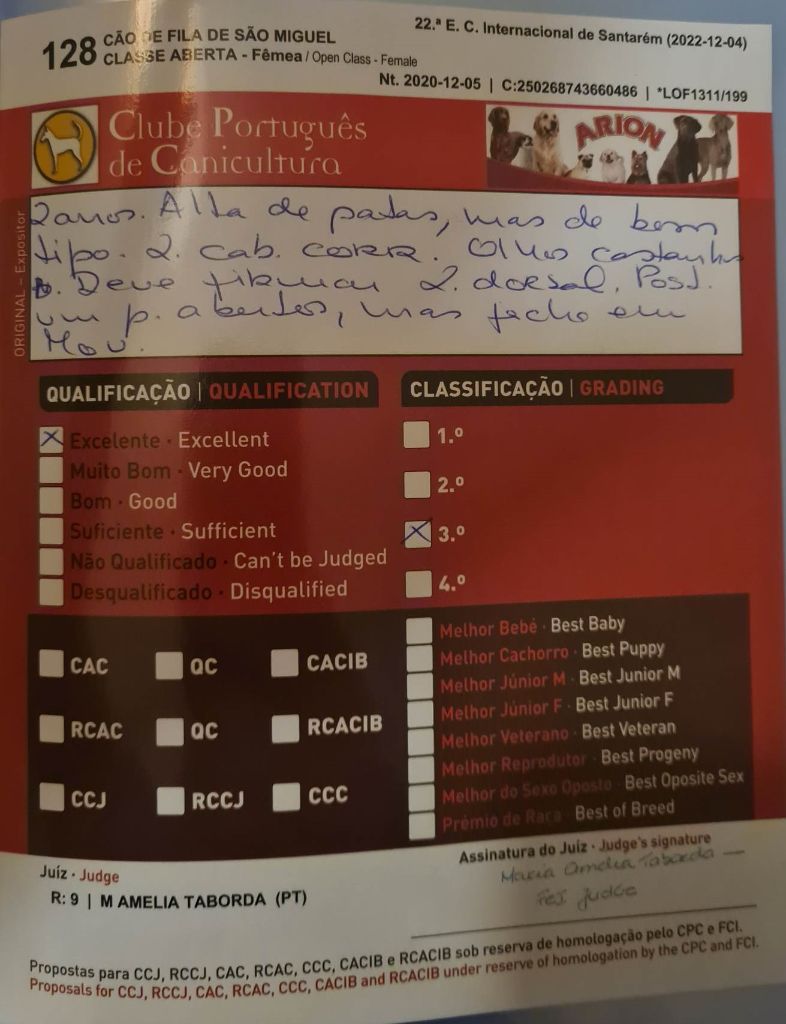 128 CÃO DE FILA DE SÃO MIGUEL
CLASSE ABERTA - Fêmea / Open Class - Female
22.ª E. C. Internacional de Santarém (2022-12-04)
Nt. 2020-12-05 | C:250268743660486 | *LOF1311/199
Clube Português
de Canicultura
ARION
ORIGINAL – Expositor
2 anos. Alta de patas, mas de bom
tipo. 2. cab. corr. Olhos castanhos
Deve firmar 2. dorsal. Post.
um p. abertos, mas fecha em
Mov.
QUALIFICAÇÃO | QUALIFICATION
Excelente · Excellent
Muito Bom · Very Good
Bom · Good
Suficiente · Sufficient
Não Qualificado · Can't be Judged
Desqualificado · Disqualified
CLASSIFICAÇÃO | GRADING
1.º
2.º
3.º
4.º
CAC QC CACIB
RCAC QC RCACIB
CCJ RCCJ CCC
Melhor Bebé · Best Baby
Melhor Cachorro · Best Puppy
Melhor Júnior M · Best Junior M
Melhor Júnior F · Best Junior F
Melhor Veterano · Best Veteran
Melhor Reprodutor · Best Progeny
Melhor do Sexo Oposto · Best Oposite Sex
Prémio de Raça · Best of Breed
Juíz · Judge
R: 9 | M AMELIA TABORDA (PT)
Assinatura do Juíz · Judge's signature
Maria Amelia Taborda
FCI Judge
Propostas para CCJ, RCCJ, CAC, RCAC, CCC, CACIB e RCACIB sob reserva de homologação pelo CPC e FCI.
Proposals for CCJ, RCCJ, CAC, RCAC, CCC, CACIB and RCACIB under reserve of homologation by the CPC and FCI.